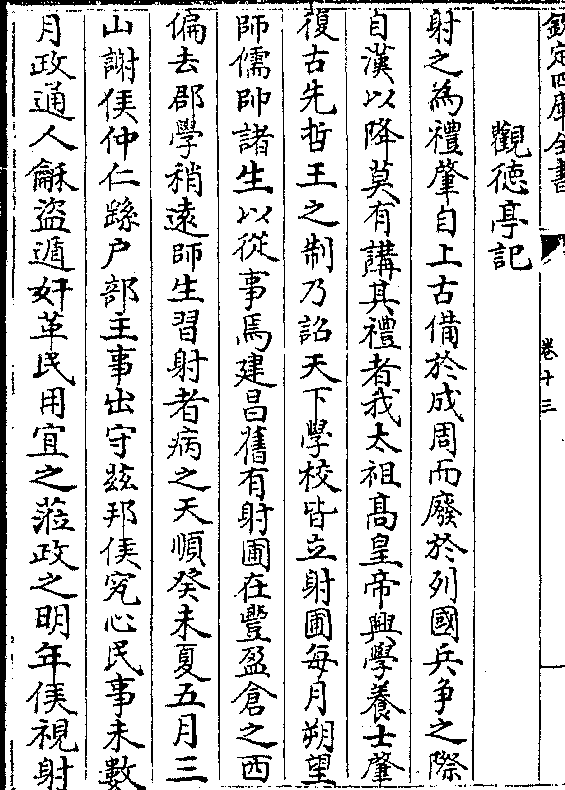 欽定四庫全書
卷十三
觀德亭記
射之為禮肇自上古備於成周而廢於列國兵争之際
自漢以降莫有講其禮者我太祖髙皇帝興學養士肇
復古先哲王之制乃詔天下學校皆立射圃每月朔望
師儒帥諸生以從事焉建昌舊有射圃在豐盈倉之西
偏去郡學稍遠師生習射者病之天順癸未夏五月三
山謝侯仲仁繇户部主事出守兹邦侯究心民事未數
月政通人龢盜遁奸革民用宜之蒞政之明年侯視射